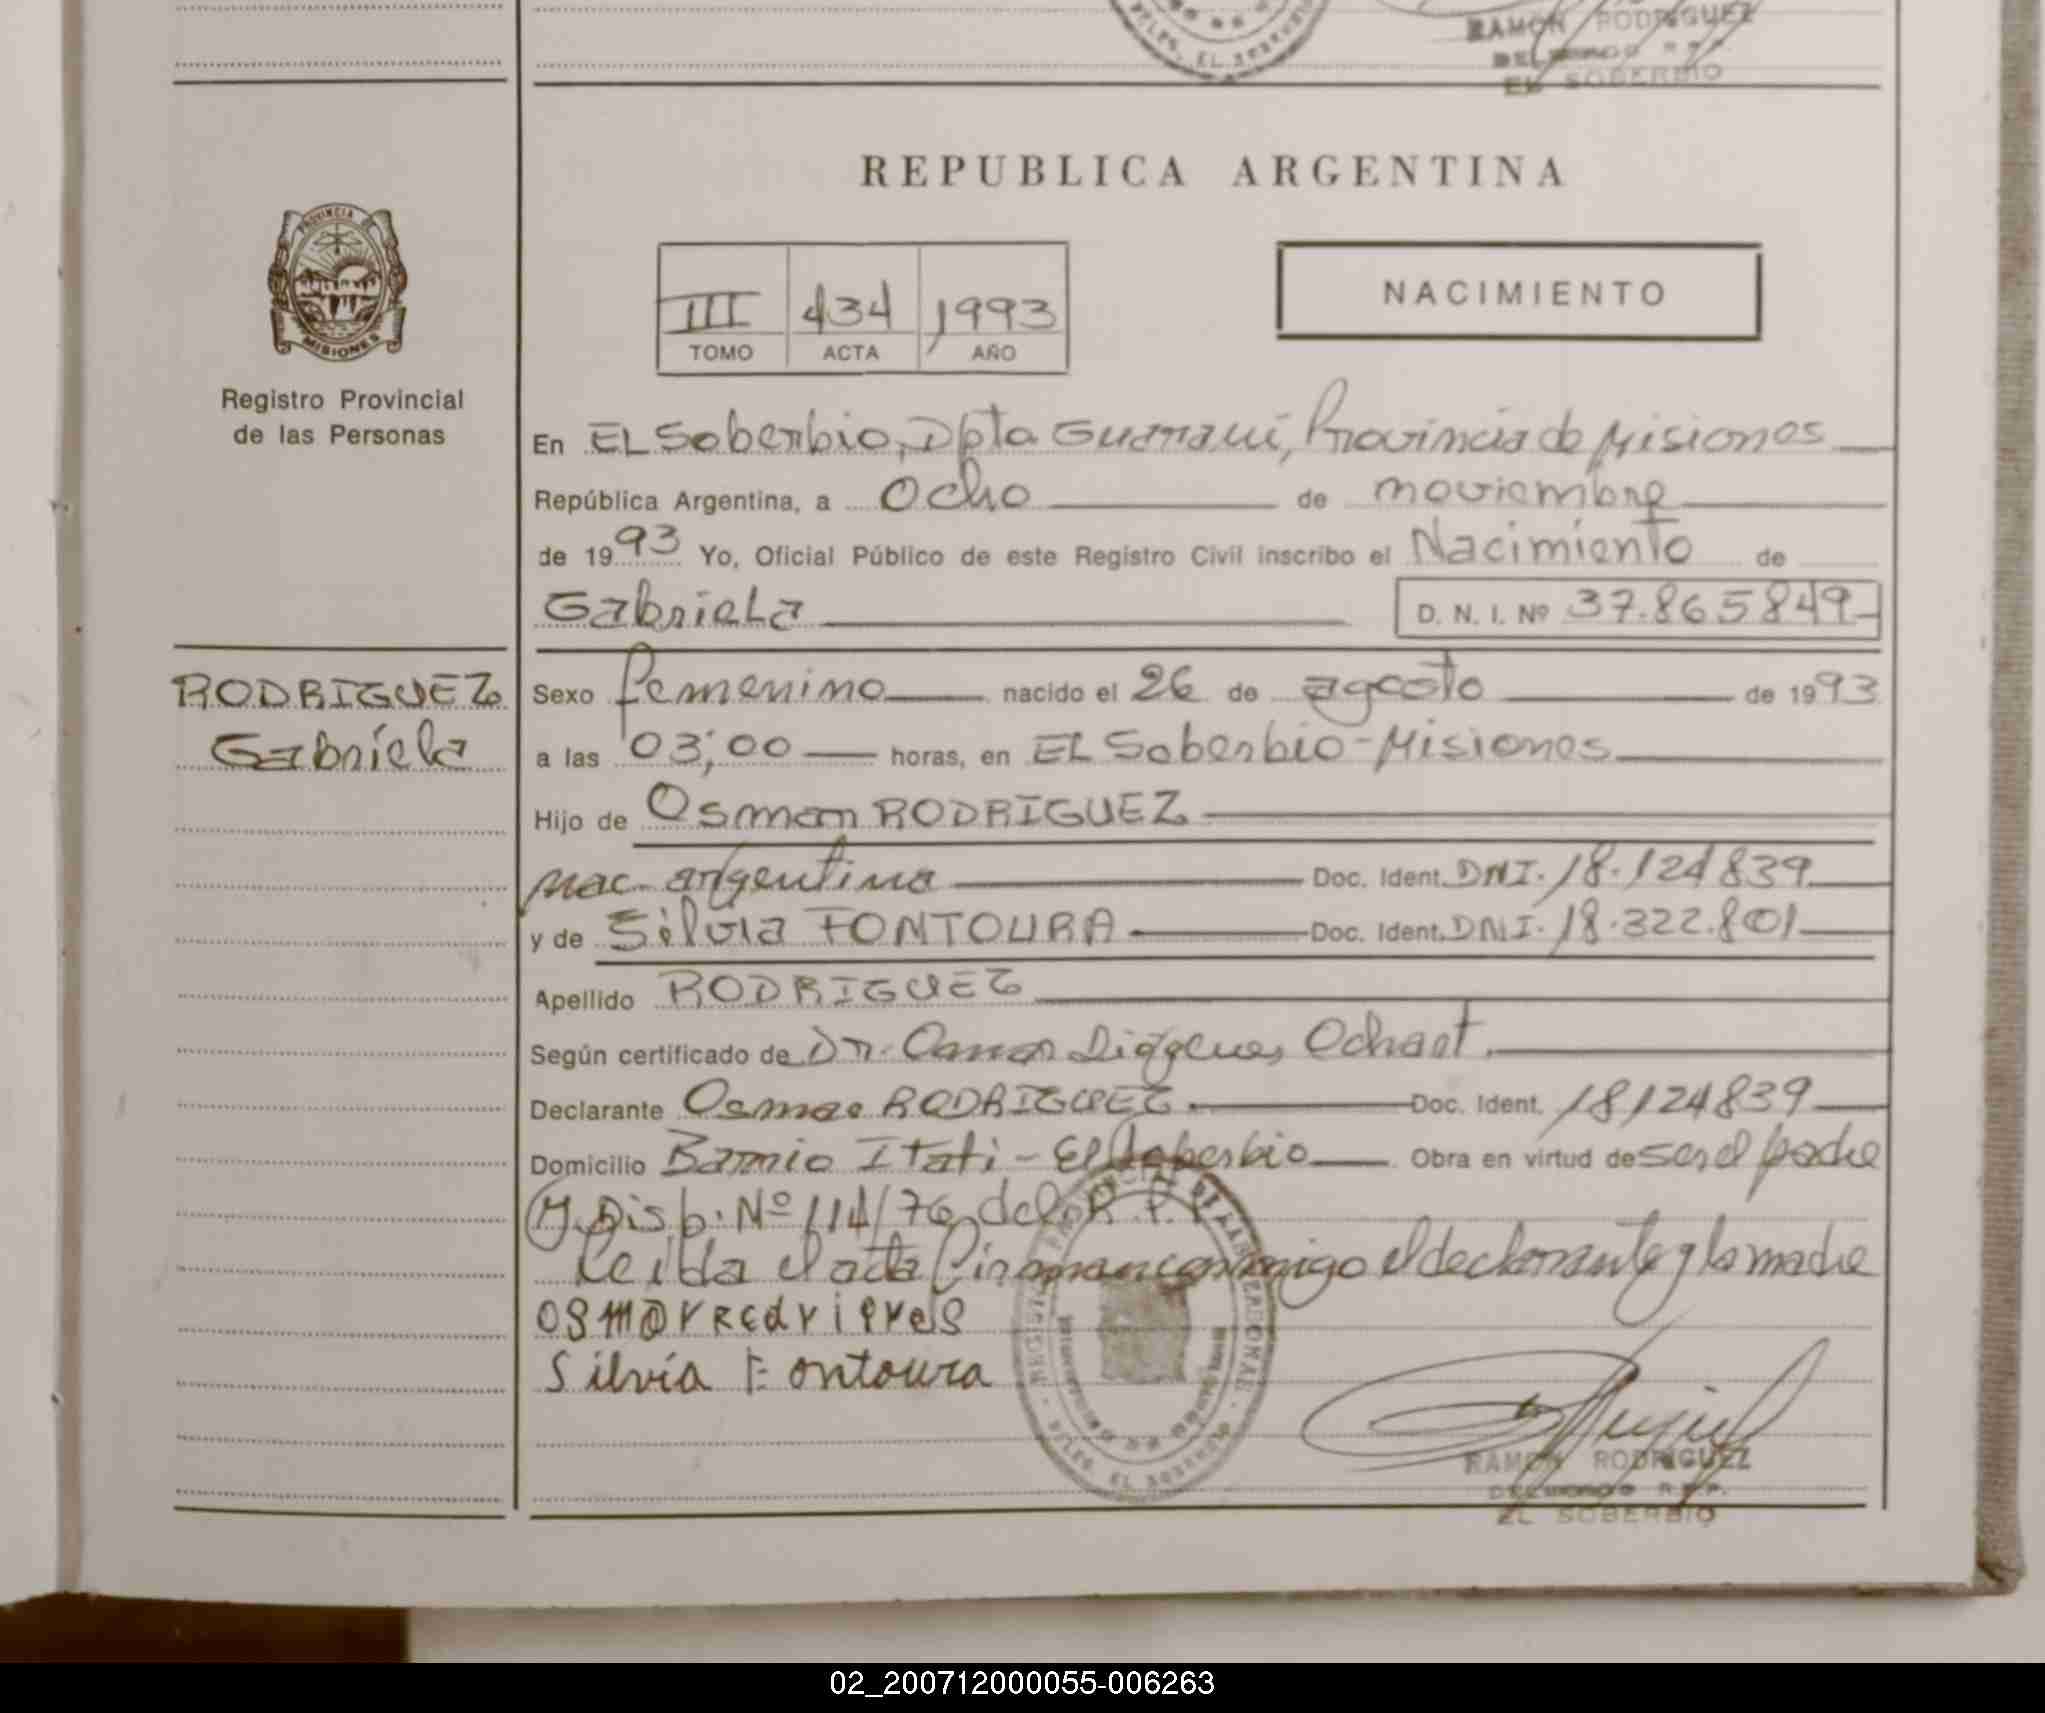 RAMON RODRIGUEZ
EL SOBERBIO
REPUBLICA ARGENTINA
PROVINCIA DE
MISIONES
III 434 1993
TOMO ACTA AÑO
NACIMIENTO
Registro Provincial
de las Personas
En EL Soberbio, Dpto Guaraní, Provincia de Misiones
República Argentina, a Ocho de noviembre
de 1993 Yo, Oficial Público de este Registro Civil inscribo el Nacimiento de
Gabriela D. N. I. Nº 37.865849
RODRIGUEZ
Gabriela
Sexo femenino nacido el 26 de agosto de 1993
a las 03;00 horas, en EL Soberbio-Misiones
Hijo de Osmar RODRIGUEZ
nac. argentina Doc. Ident. DNI. 18.124839
y de Silvia FONTOURA Doc. Ident. DNI. 18.322.801
Apellido RODRIGUEZ
Según certificado de Dr. Omar Diógenes Ochaet
Declarante Osmar RODRIGUEZ Doc. Ident. 18124839
Domicilio Barrio Itati - El Soberbio Obra en virtud de ser el padre
Disp. Nº 114/76 del R. P. P.
Leída el acta firman conmigo el declarante y la madre
Silvia Fontoura
RAMON RODRIGUEZ
EL SOBERBIO
02_200712000055-006263